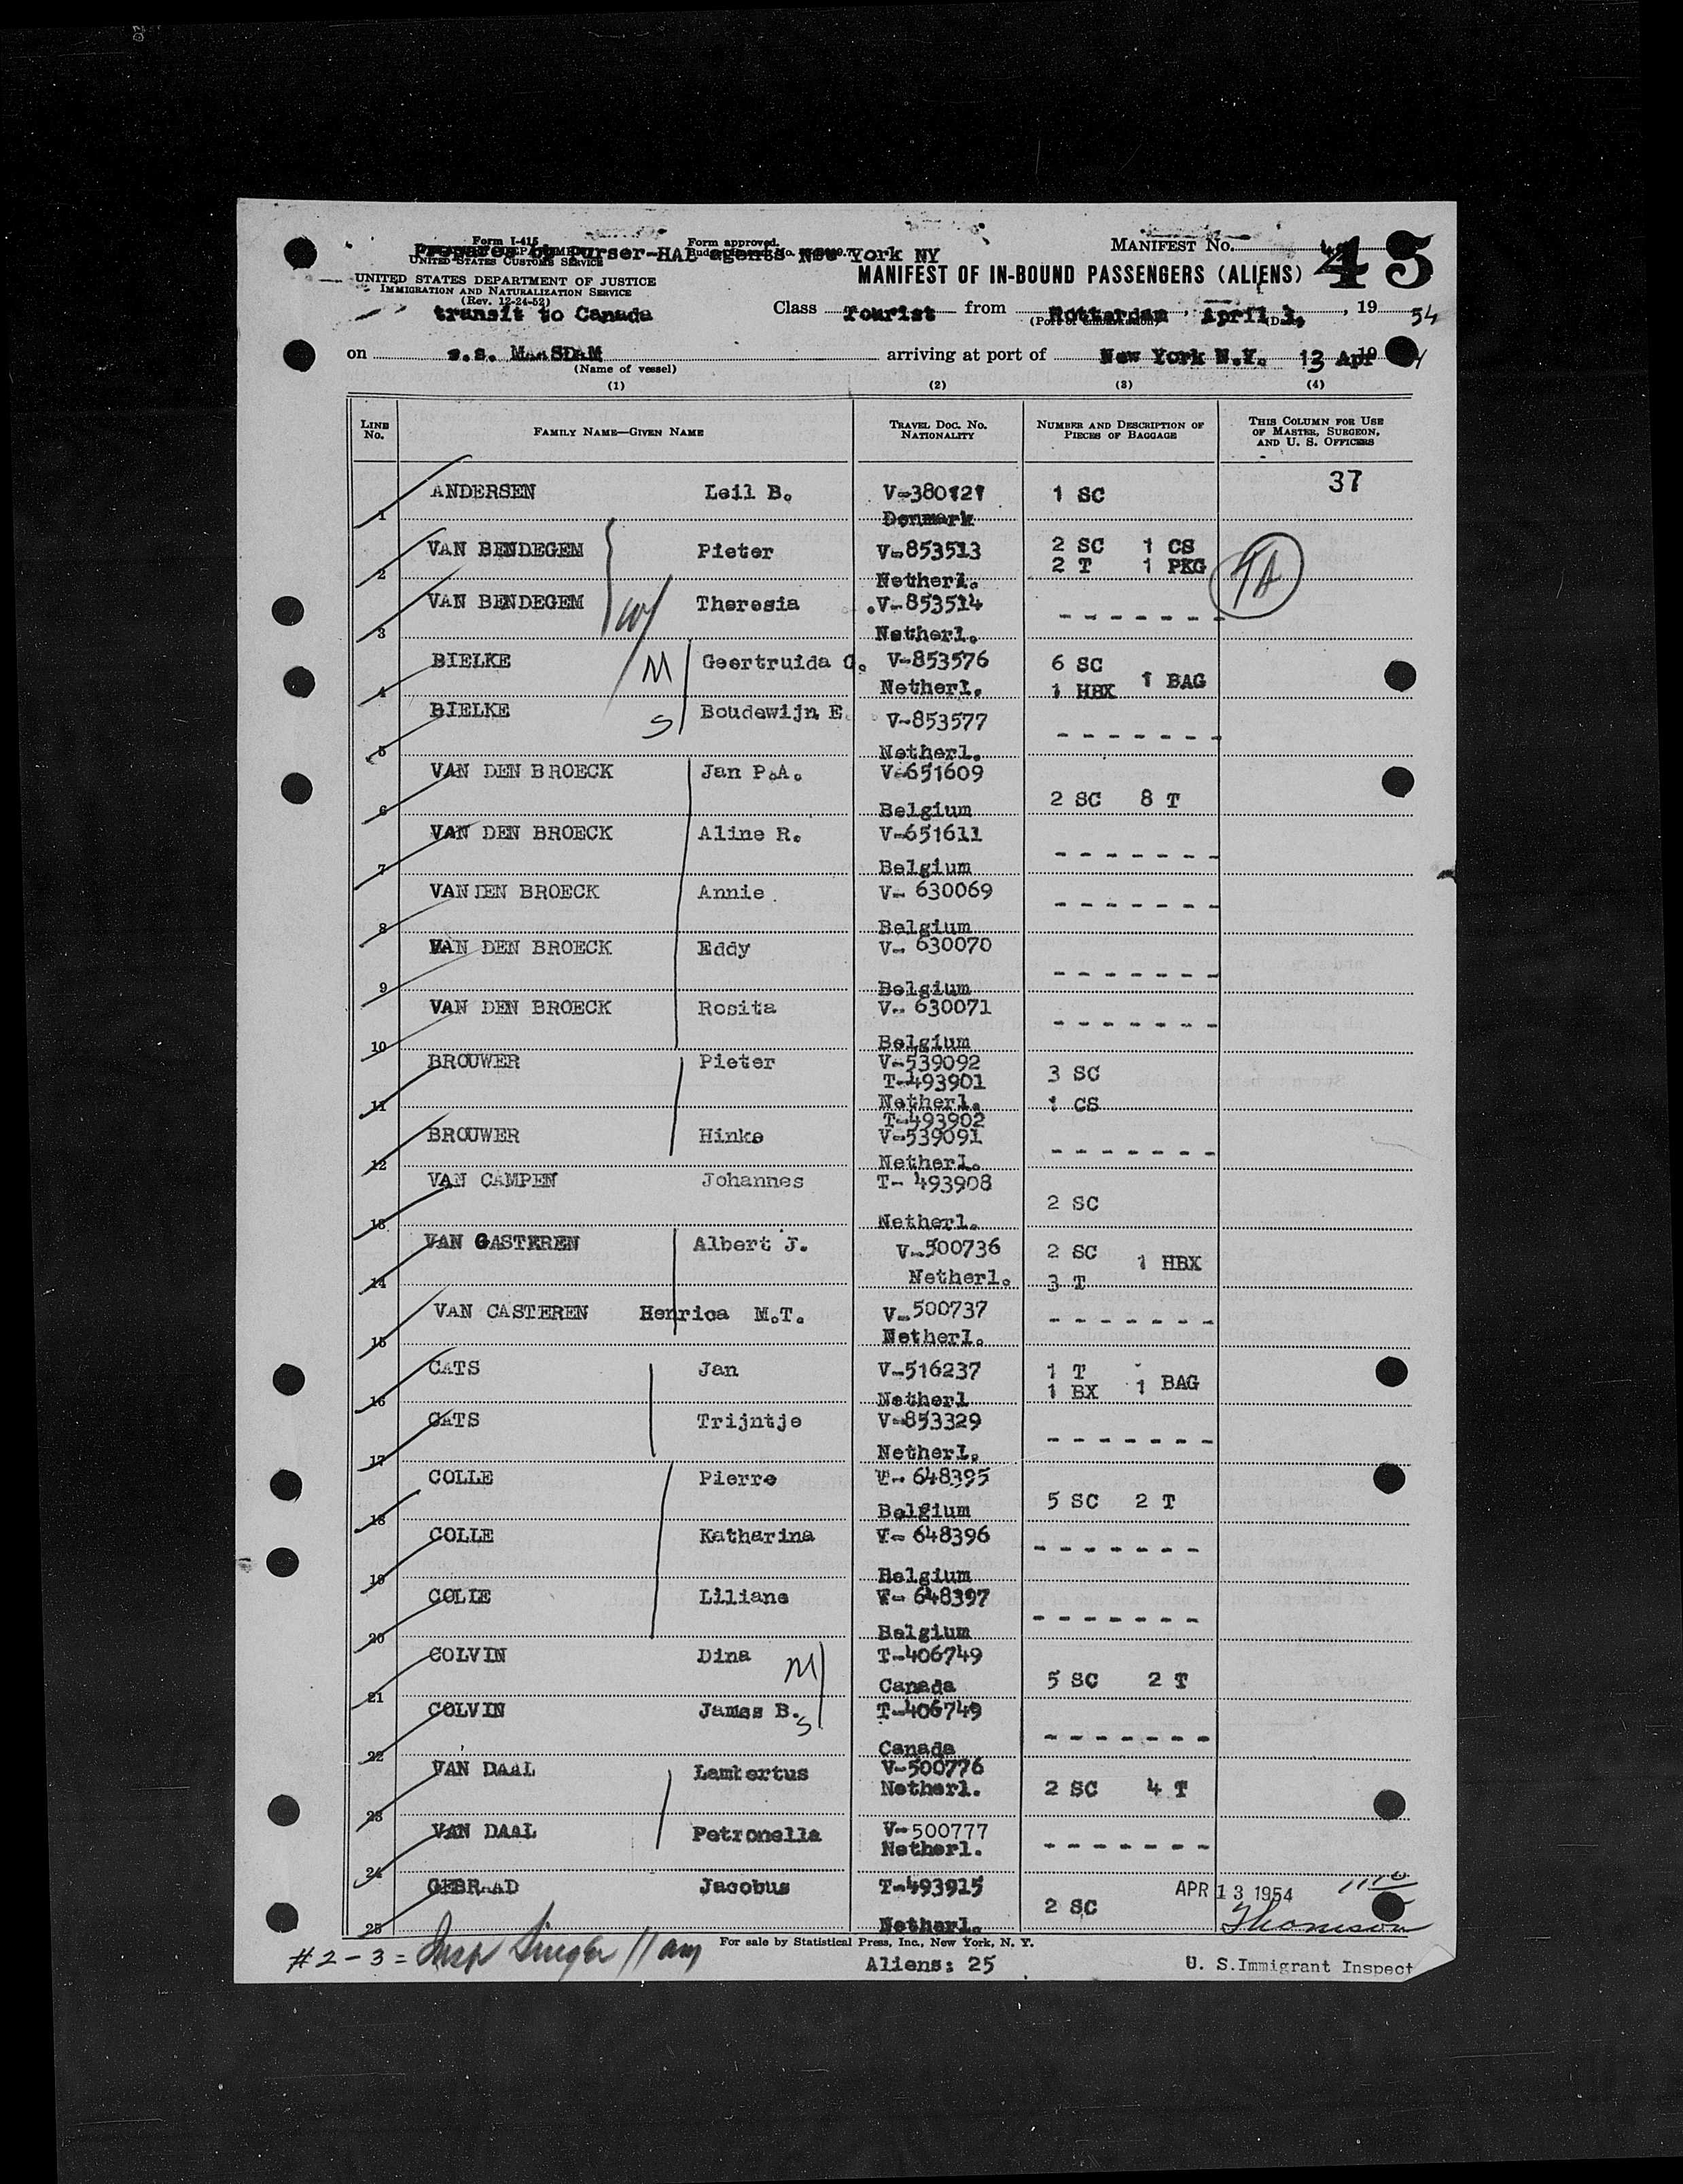 Form I-415
UNITED STATES CUSTOMS SERVICE
Form approved.
Prepares by Purser-HAL agents New York NY
MANIFEST No. 45
UNITED STATES DEPARTMENT OF JUSTICE
IMMIGRATION AND NATURALIZATION SERVICE
(Rev. 12-24-52)
MANIFEST OF IN-BOUND PASSENGERS (ALIENS)
transit to Canada
Class Tourist from Rotterdam, April 3, 1954
on s.s. MAASDAM arriving at port of New York N.Y. 13 Apr 19
(Name of vessel)
(1) (2) (3) (4)
LINE No. FAMILY NAME—GIVEN NAME TRAVEL DOC. NO. NATIONALITY NUMBER AND DESCRIPTION OF PIECES OF BAGGAGE THIS COLUMN FOR USE OF MASTER, SURGEON, AND U. S. OFFICERS
37
1 ANDERSEN Leil B. V-380121 Denmark 1 SC
2 VAN BENDEGEM Pieter V-853513 Netherl. 2 SC 1 CS 2 T 1 PKG
3 VAN BENDEGEM W Theresia V-853514 Netherl. - - - - - - -
4 BIELKE M Geertruida C. V-853576 Netherl. 6 SC 1 HBX 1 BAG
5 BIELKE S Boudewijn E. V-853577 Netherl. - - - - - - -
6 VAN DEN BROECK Jan P.A. V-651609 Belgium 2 SC 8 T
7 VAN DEN BROECK Aline R. V-651611 Belgium - - - - - - -
8 VAN DEN BROECK Annie V- 630069 Belgium - - - - - - -
9 VAN DEN BROECK Eddy V- 630070 Belgium - - - - - - -
10 VAN DEN BROECK Rosita V- 630071 Belgium - - - - - - -
11 BROUWER Pieter V-539092 T-493901 Netherl. 3 SC 1 CS
12 BROUWER Hinke T-493902 V-539091 Netherl. - - - - - - -
13 VAN CAMPEN Johannes T- 493908 Netherl. 2 SC
14 VAN GASTEREN Albert J. V-500736 Netherl. 2 SC 1 HBX 3 T
15 VAN CASTEREN Henrica M.T. V-500737 Netherl. - - - - - - -
16 CATS Jan V-516237 Netherl 1 T 1 BX 1 BAG
17 CATS Trijntje V-853329 Netherl. - - - - - - -
18 COLLE Pierre V- 648395 Belgium 5 SC 2 T
19 COLLE Katharina V- 648396 Belgium - - - - - - -
20 COLLE Liliane V- 648397 Belgium - - - - - - -
21 COLVIN Dina M T-406749 Canada 5 SC 2 T
22 COLVIN James B. S T-406749 Canada - - - - - - -
23 VAN DAAL Lambertus V-500776 Netherl. 2 SC 4 T
24 VAN DAAL Petronella V-500777 Netherl. - - - - - - -
25 GEBRAAD Jacobus T-493915 Netherl. 2 SC
APR 13 1954
Thomson
For sale by Statistical Press, Inc., New York, N. Y.
#2-3 = Insp 11 am
Aliens: 25
U. S. Immigrant Inspect